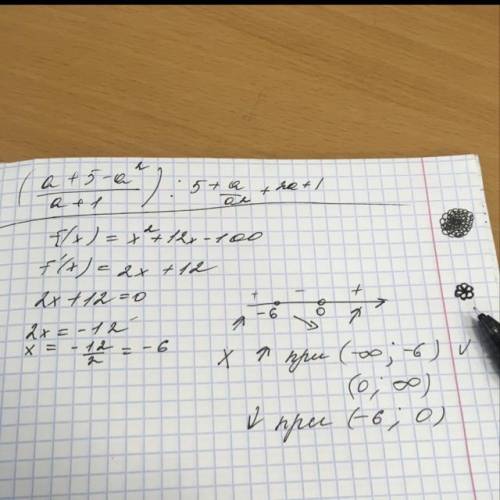 (a + 5 - a² / a + 1) : 5 + a / a² + 2a + 1
f(x) = x² + 12x - 100
f'(x) = 2x + 12
2x + 12 = 0
2x = -12
x = -12/2 = -6
+ - +
-6 0
x ↑ при (-∞; -6) ∨
(0; ∞)
↓ при (-6; 0)